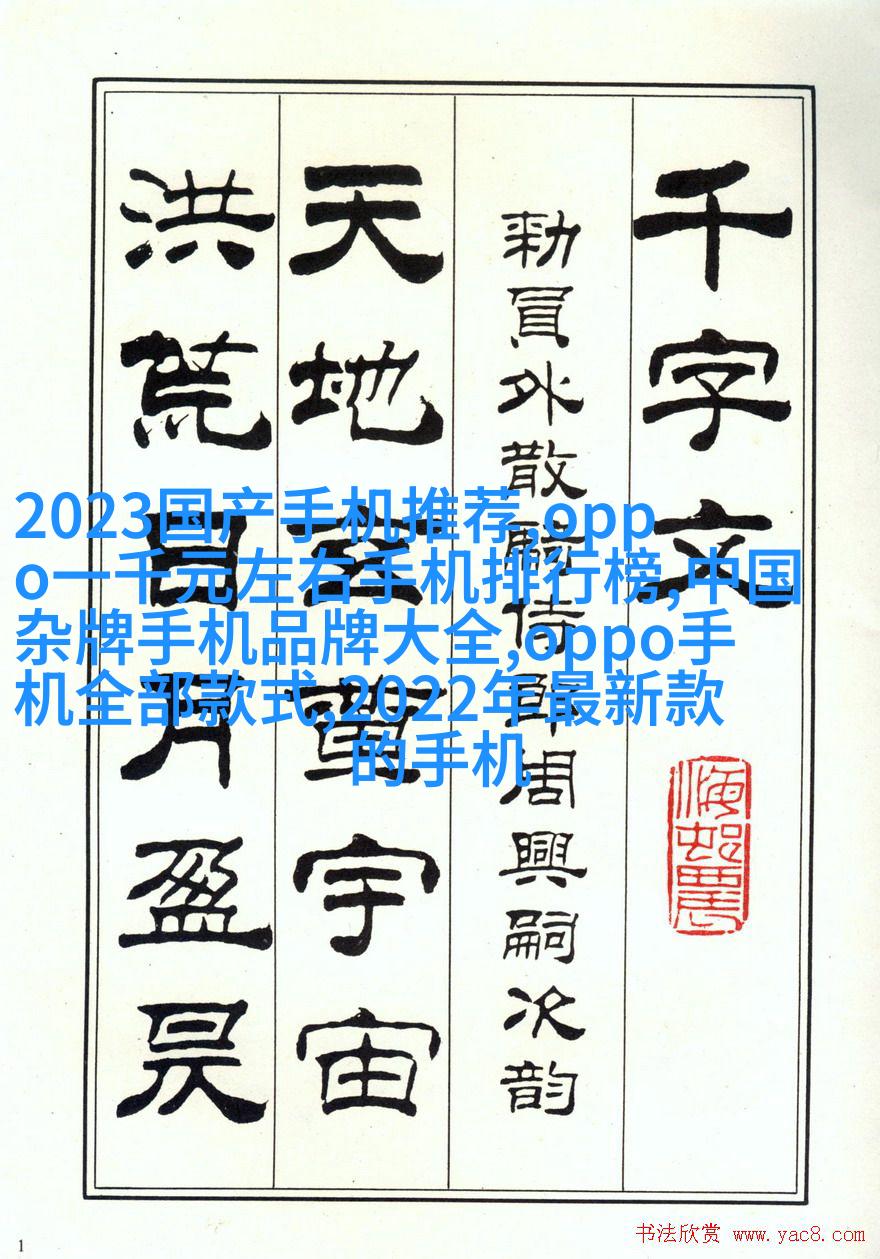 千字文
勑員外散騎侍郎周興嗣次韵
天地玄黃宇宙
洪荒日月盈昃
2023国产手机推荐,opp
o一千元左右手机排行榜,中国
杂牌手机品牌大全,oppo手
机全部款式,2022年最新款
的手机
1
书法欣赏 www.yac8.com